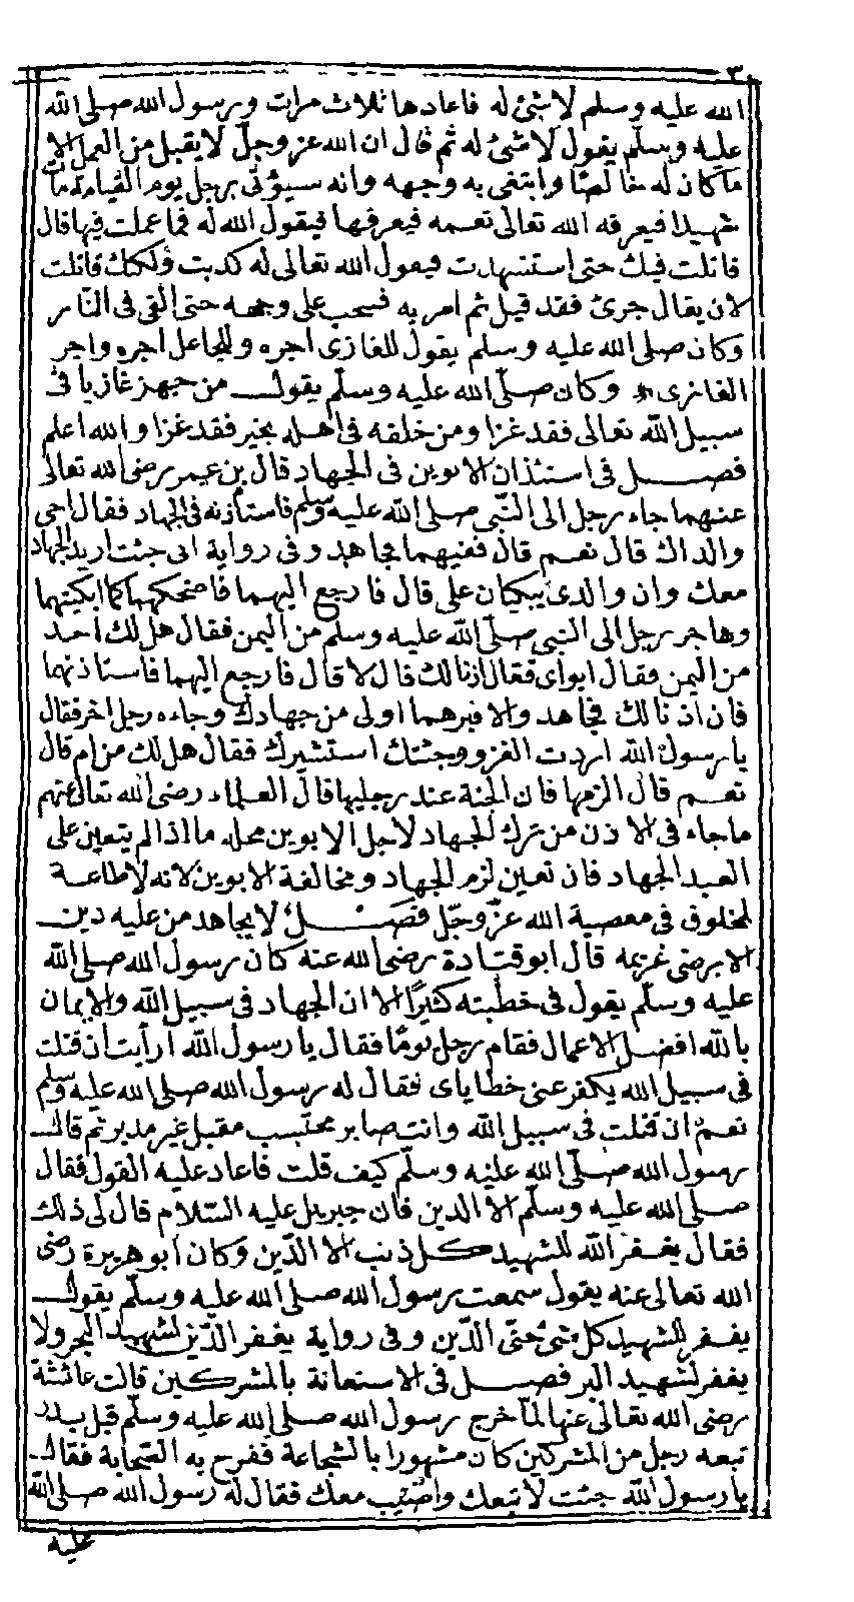 ٣
الله عليه وسلم لا شئ له فاعادها ثلاث مرات ورسول الله صلى الله
عليه وسلم يقول لا شئ له ثم قال ان الله عز وجل لا يقبل من العمل الا
ما كان له خالصا وابتغى به وجهه وانه سيؤتى برجل يوم القيامة مات
شهيدا فيعرفه الله تعالى نعمه فيعرفها فيقول الله له فما عملت فيها قال
قاتلت فيك حتى استشهدت فيقول الله تعالى له كذبت ولكنك قاتلت
لان يقال جرئ فقد قيل ثم امر به فسحب على وجهه حتى القى فى النار
وكان صلى الله عليه وسلم يقول للغازى اجره وللجاعل اجره واجر
الغازى وكان صلى الله عليه وسلم يقول من جهز غازيا فى
سبيل الله تعالى فقد غزا ومن خلفه فى اهله بخير فقد غزا والله اعلم
فصل فى استئذان الابوين فى الجهاد قال بن عمر رضى الله تعالى
عنهما جاء رجل الى النبى صلى الله عليه وسلم فاستأذنه فى الجهاد فقال احى
والداك قال نعم قال ففيهما فجاهد وفى رواية انى جئت اريد الجهاد
معك وان والدى يبكيان على قال فارجع اليهما فاضحكهما كما ابكيتهما
وهاجر رجل الى النبى صلى الله عليه وسلم من اليمن فقال هل لك احد
من اليمن فقال ابواى فقال اذنا لك قال لا قال فارجع اليهما فاستاذنهما
فان اذنا لك فجاهد والا فبرهما اولى من جهادك وجاءه رجل اخر فقال
يا رسول الله اردت الغزو وجئتك استشيرك فقال هل لك من ام قال
نعم قال الزمها فان الجنة عند رجليها قال العلماء رضى الله تعالى عنهم
ما جاء فى الاذن من ترك الجهاد لاجل الابوين محله ما اذا لم يتعين على
العبد الجهاد فان تعين لزم الجهاد ومخالفة الابوين لانه لا طاعة
لمخلوق فى معصية الله عز وجل فصل لا يجاهد من عليه دين
الا برضى غريمه قال ابو قتادة رضى الله عنه كان رسول الله صلى الله
عليه وسلم يقول فى خطبته كثيرا الا ان الجهاد فى سبيل الله والايمان
بالله افضل الاعمال فقام رجل يوما فقال يا رسول الله ارأيت ان قتلت
فى سبيل الله يكفر عنى خطاياى فقال له رسول الله صلى الله عليه وسلم
نعم ان قتلت فى سبيل الله وانت صابر محتسب مقبل غير مدبر ثم قال
رسول الله صلى الله عليه وسلم كيف قلت فاعاد عليه القول فقال
صلى الله عليه وسلم الا الدين فان جبريل عليه السلام قال لى ذلك
فقال يغفر الله للشهيد كل ذنب الا الدين وكان ابو هريرة رضى
الله تعالى عنه يقول سمعت رسول الله صلى الله عليه وسلم يقول
يغفر للشهيد كل شئ حتى الدين وفى رواية يغفر الدين لشهيد البحر ولا
يغفر لشهيد البر فصل فى الاستعانة بالمشركين قالت عائشة
رضى الله تعالى عنها لما خرج رسول الله صلى الله عليه وسلم قبل بدر
تبعه رجل من المشركين كان مشهورا بالشجاعة ففرح به الصحابة فقال
يا رسول الله جئت لاتبعك واصيب معك فقال له رسول الله صلى الله
عليه